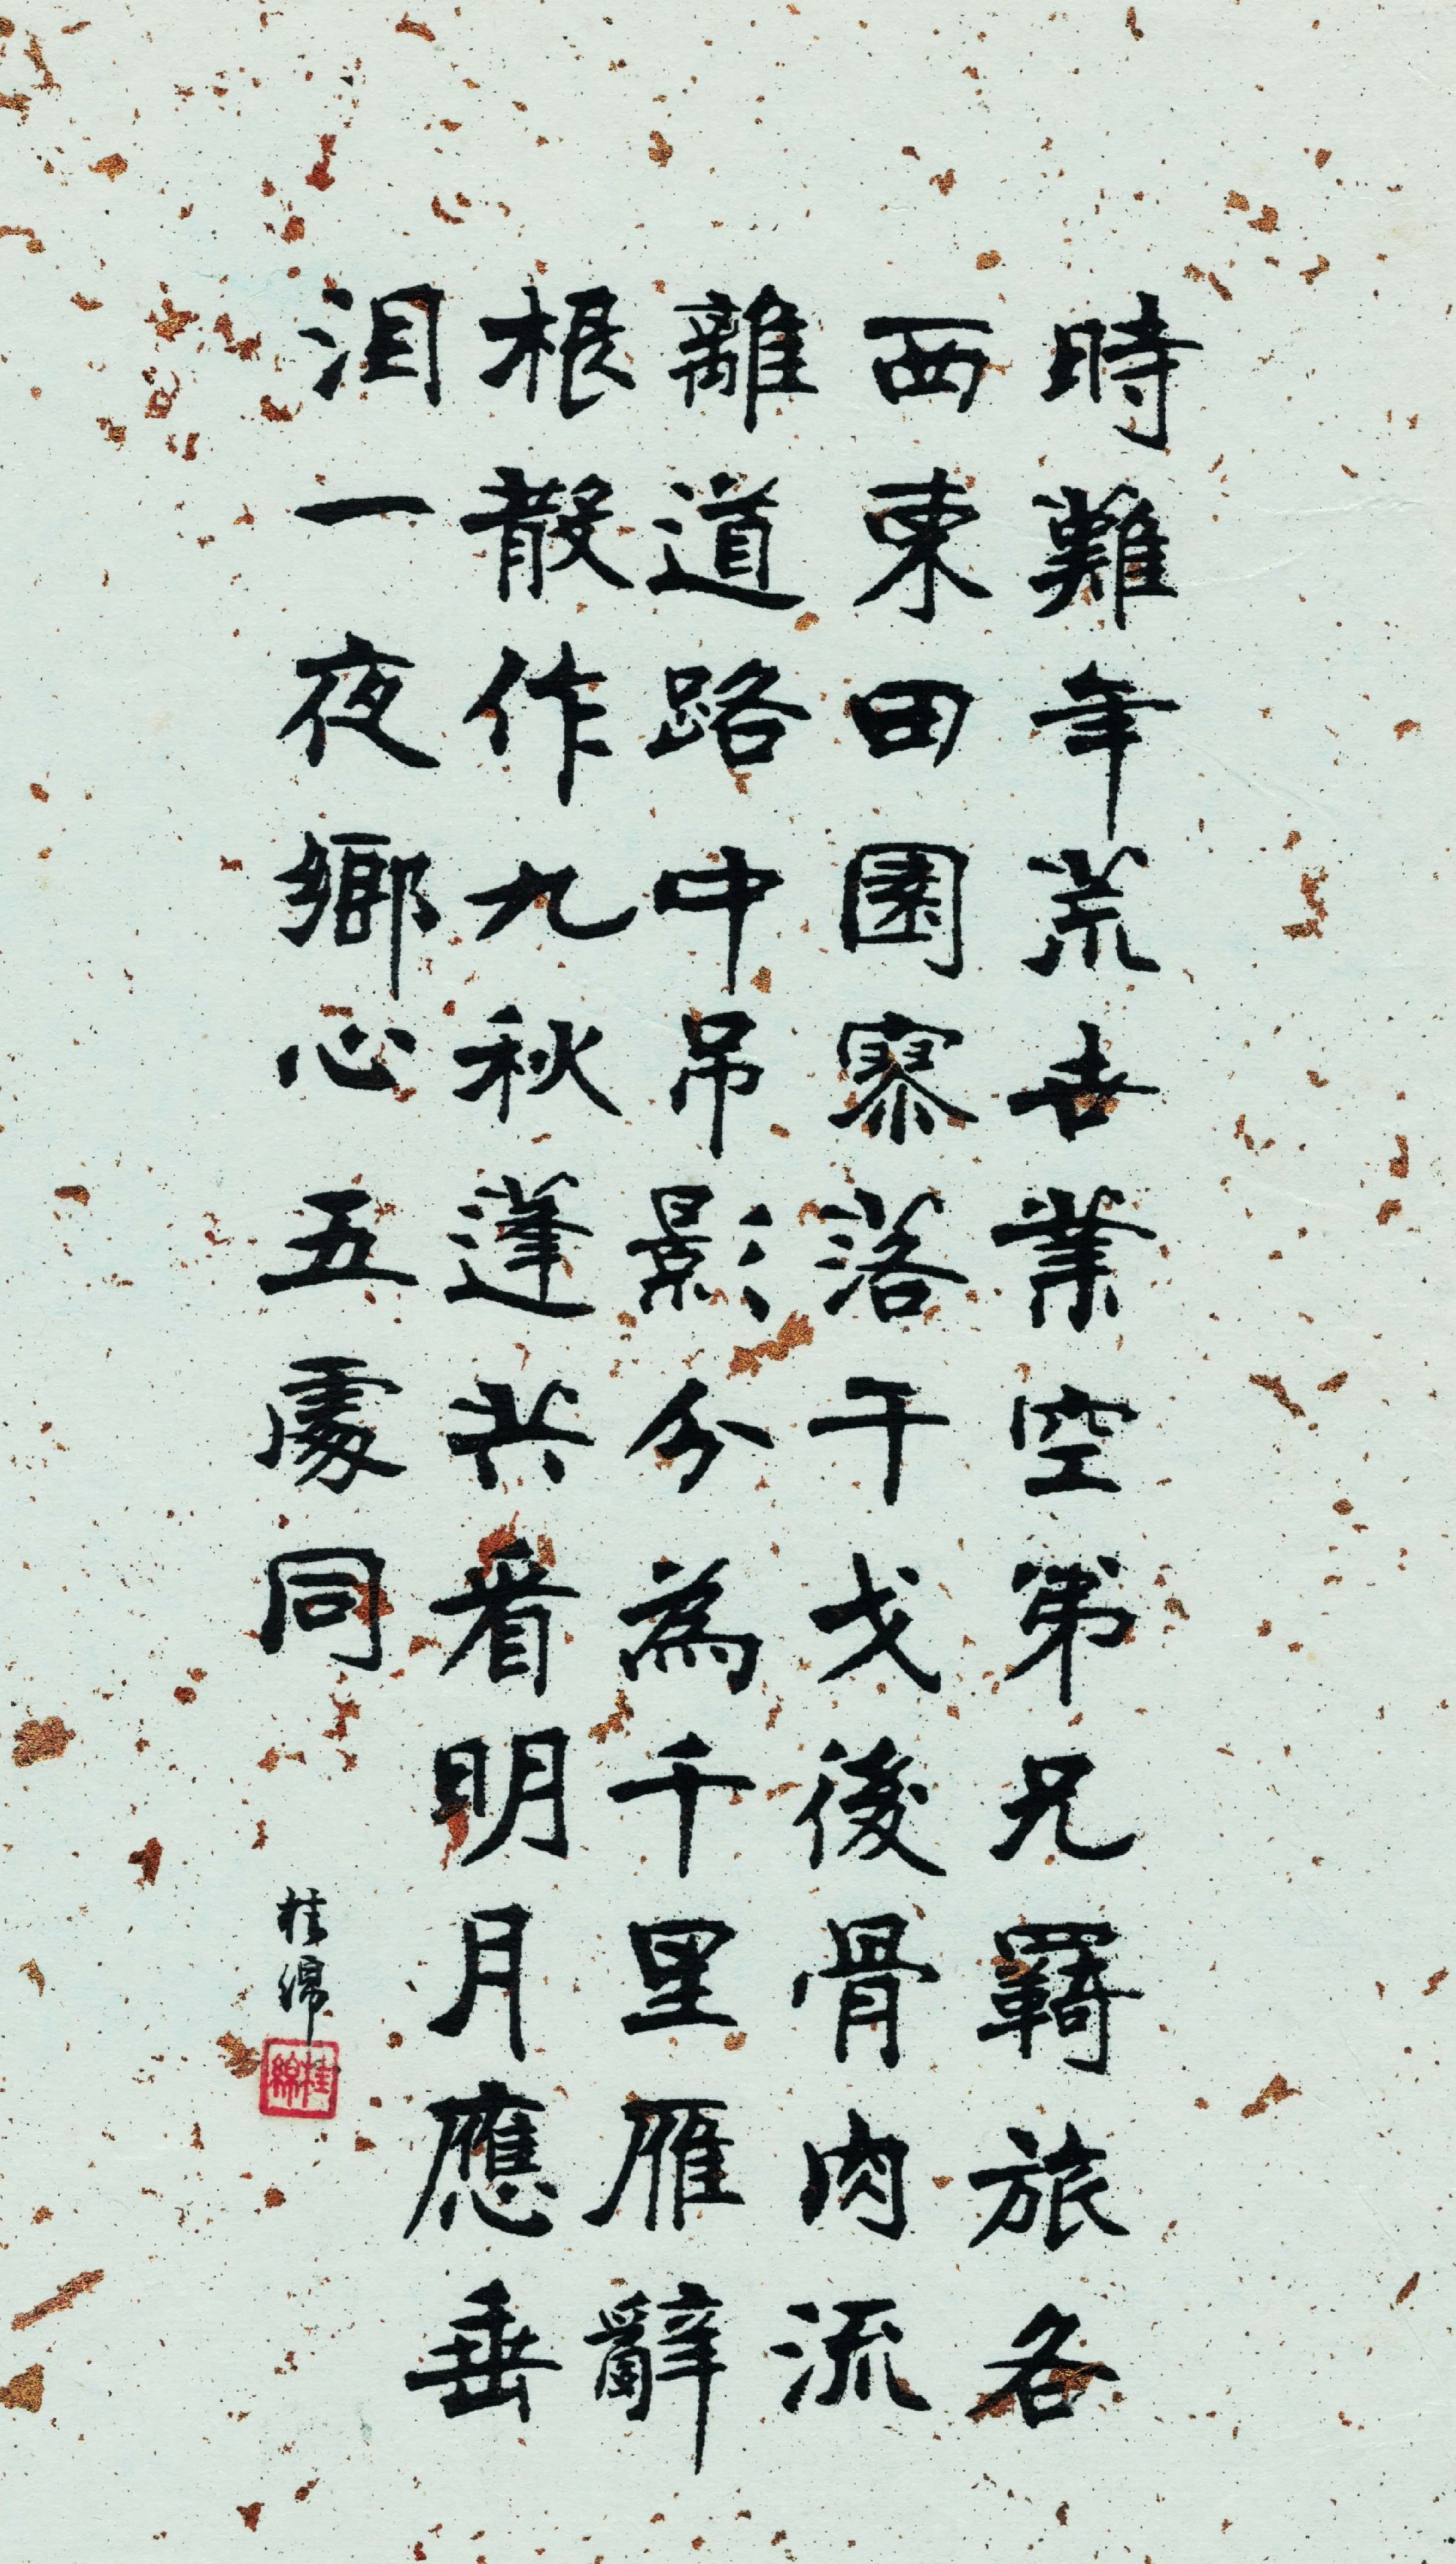 時難年荒世業空弟兄羈旅各
西東田園寥落干戈後骨肉流
離道路中吊影分為千里雁辭
根散作九秋蓬共看明月應垂
淚一夜鄉心五處同
桂綿
桂綿